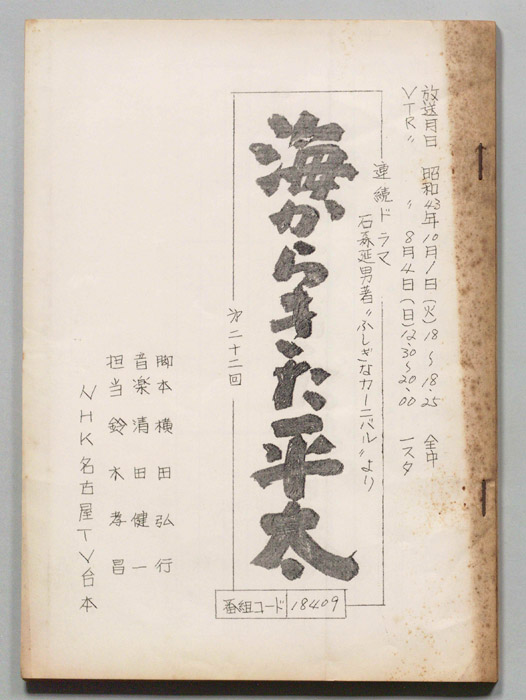 放送月日 昭和43年10月1日(火)18〜18.25 全中
VTR〃 〃 8月4日(日)12.30〜20.00 1スタ
連続ドラマ
石森延男著〃ふしぎなカーニバル〃より
海からきた平太
第二十二回
脚本 横田弘行
音楽 清田健一
担当 鈴木孝昌
NHK名古屋TV台本
番組コード 18409